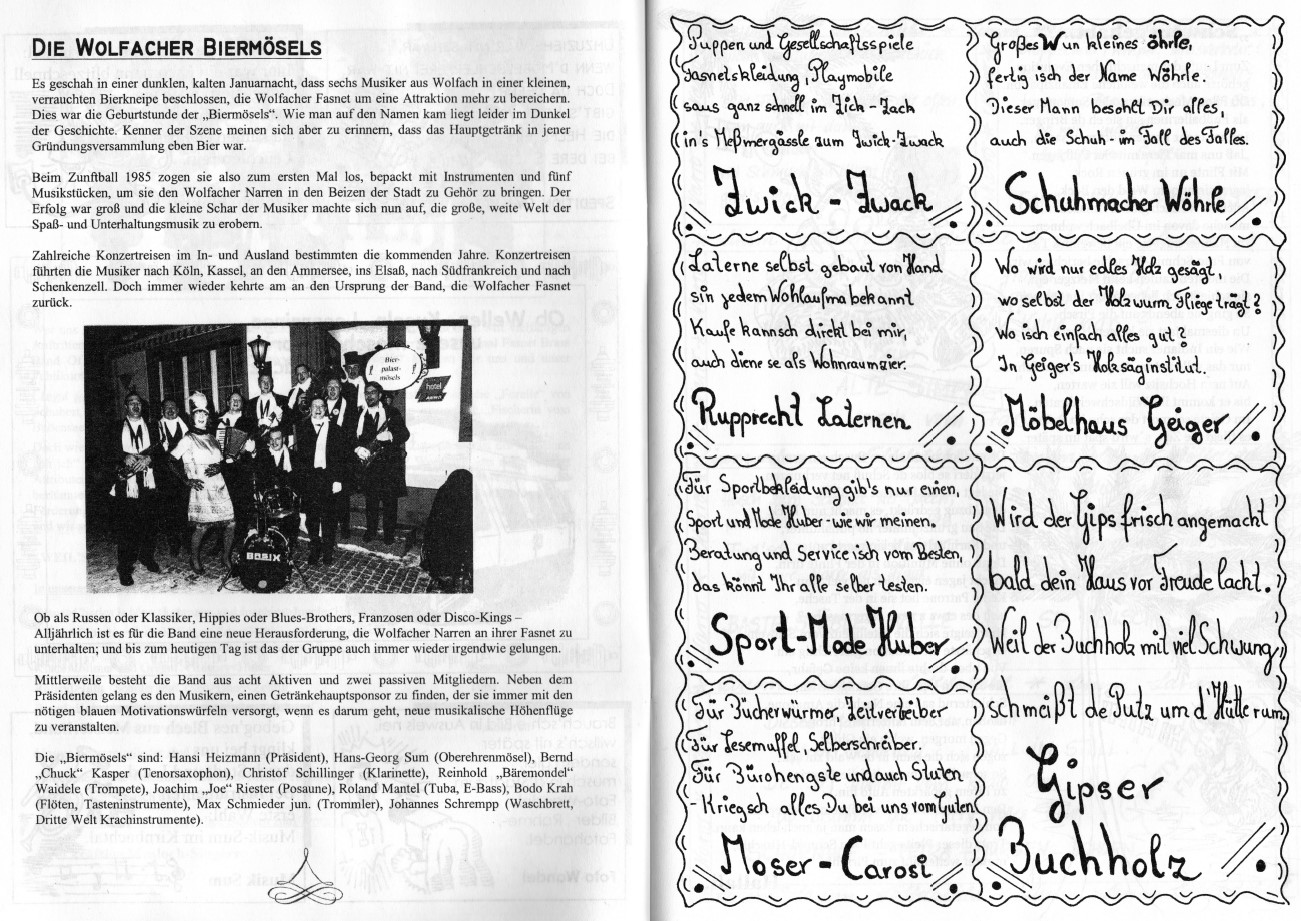 DIE WOLFACHER BIERMÖSELS
Es geschah in einer dunklen, kalten Januarnacht, dass sechs Musiker aus Wolfach in einer kleinen,
verrauchten Bierkneipe beschlossen, die Wolfacher Fasnet um eine Attraktion mehr zu bereichern.
Dies war die Geburtstunde der „Biermösels". Wie man auf den Namen kam liegt leider im Dunkel
der Geschichte. Kenner der Szene meinen sich aber zu erinnern, dass das Hauptgetränk in jener
Gründungsversammlung eben Bier war.
Beim Zunftball 1985 zogen sie also zum ersten Mal los, bepackt mit Instrumenten und fünf
Musikstücken, um sie den Wolfacher Narren in den Beizen der Stadt zu Gehör zu bringen. Der
Erfolg war groß und die kleine Schar der Musiker machte sich nun auf, die große, weite Welt der
Spaß- und Unterhaltungsmusik zu erobern.
Zahlreiche Konzertreisen im In- und Ausland bestimmten die kommenden Jahre. Konzertreisen
führten die Musiker nach Köln, Kassel, an den Ammersee, ins Elsaß, nach Südfrankreich und nach
Schenkenzell. Doch immer wieder kehrte am an den Ursprung der Band, die Wolfacher Fasnet
zurück.
Bier-
palast-
mösels
hotel
BASIX
Ob als Russen oder Klassiker, Hippies oder Blues-Brothers, Franzosen oder Disco-Kings –
Alljährlich ist es für die Band eine neue Herausforderung, die Wolfacher Narren an ihrer Fasnet zu
unterhalten; und bis zum heutigen Tag ist das der Gruppe auch immer wieder irgendwie gelungen.
Mittlerweile besteht die Band aus acht Aktiven und zwei passiven Mitgliedern. Neben dem
Präsidenten gelang es den Musikern, einen Getränkehauptsponsor zu finden, der sie immer mit den
nötigen blauen Motivationswürfeln versorgt, wenn es darum geht, neue musikalische Höhenflüge
zu veranstalten.
Die „Biermösels" sind: Hansi Heizmann (Präsident), Hans-Georg Sum (Oberehrenmösel), Bernd
„Chuck" Kasper (Tenorsaxophon), Christof Schillinger (Klarinette), Reinhold „Bäremondel"
Waidele (Trompete), Joachim „Joe" Riester (Posaune), Roland Mantel (Tuba, E-Bass), Bodo Krah
(Flöten, Tasteninstrumente), Max Schmieder jun. (Trommler), Johannes Schrempp (Waschbrett,
Dritte Welt Krachinstrumente).
Puppen und Gesellschaftsspiele
Fasnetskleidung, Playmobile
saus ganz schnell im Zick-Zack
in's Meßmergässle zum Zwick-Zwack
Zwick - Zwack
Großes W un kleines öhrle,
fertig isch der Name Wöhrle.
Dieser Mann besohlt Dir alles
auch die Schuh - im Fall des Falles.
Schuhmacher Wöhrle
Laterne selbst gebaut von Hand
sin jedem Wohlaufma bekannt
Kaufe kannsch direkt bei mir,
auch diene se als Wohnraumzier.
Rupprecht Laternen
Wo wird nur edles Holz gesägt,
wo selbst der Holzwurm Fliege trägt?
Wo isch einfach alles gut?
In Geiger's Holzsäginstitut.
Möbelhaus Geiger
Für Sportbekleidung gib's nur einen,
Sport und Mode Huber - wie wir meinen.
Beratung und Service isch vom Besten,
das könnt Ihr alle selber testen.
Sport-Mode Huber
Für Bücherwürmer, Zeitvertreiber
Für Lesemuffel, Selberschreiber.
Für Bürohengste und auch Stuten
- Kriegsch alles Du bei uns vom Guten
Moser - Carosi
Wird der Gips frisch angemacht
bald dein Haus vor Freude lacht.
Weil der Buchholz mit viel Schwung
schmeißt de Putz um d'Hütte rum.
Gipser
Buchholz